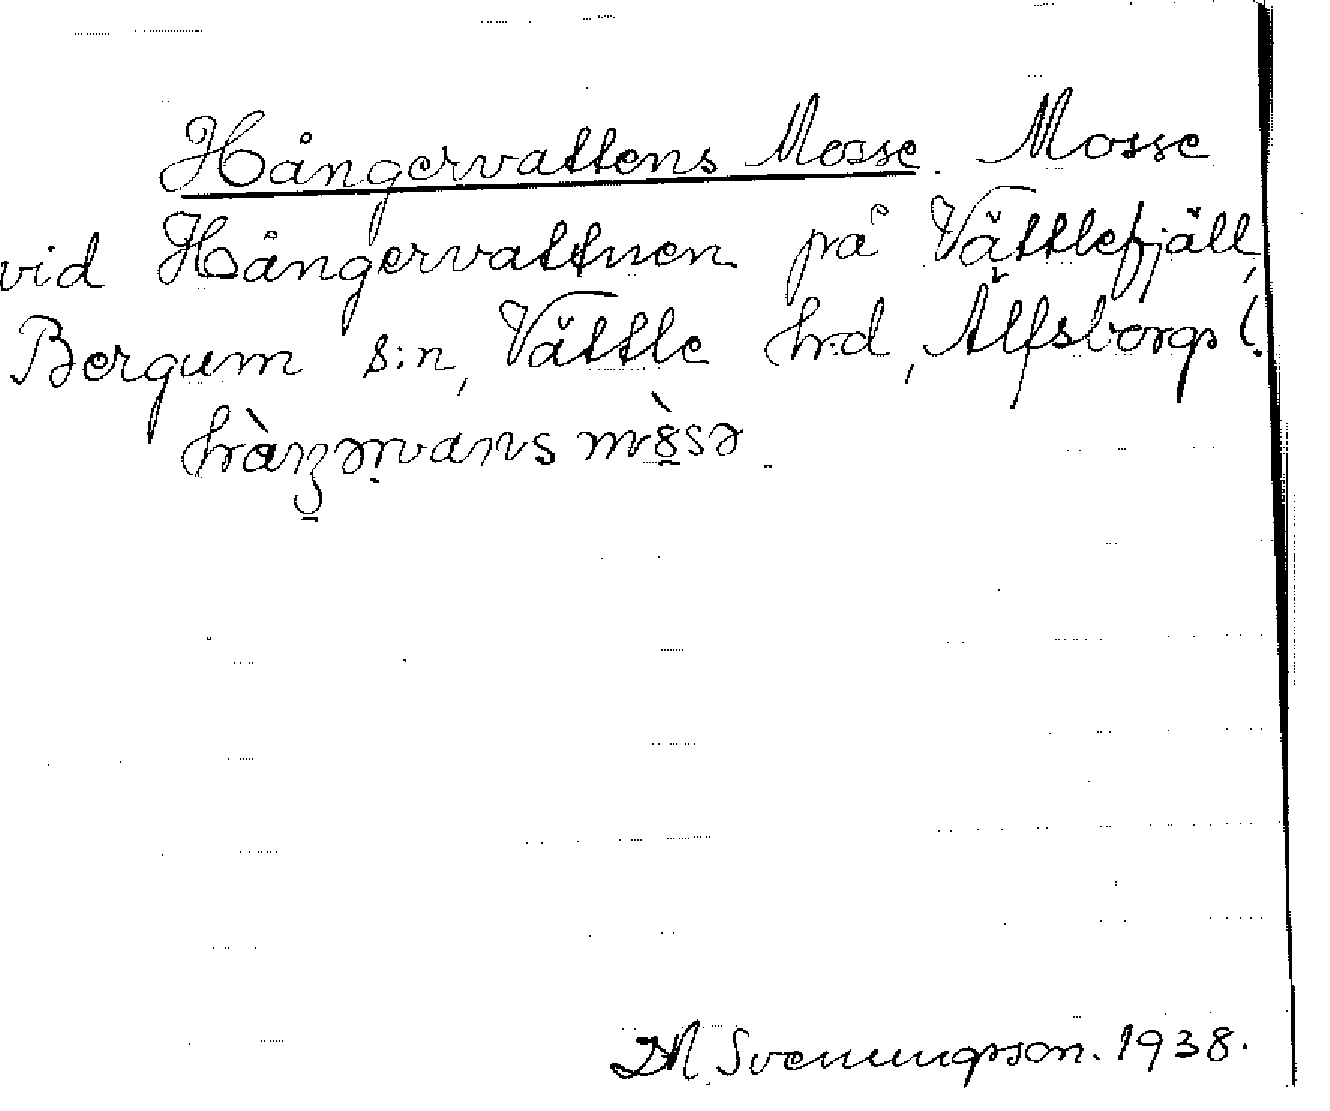 Hångervattens Mosse. Mosse
vid Hångervattnen på Vättlefjäll,
Bergum s:n, Vättle hrd, Älfsborgs l.
M Svenungsson. 1938.